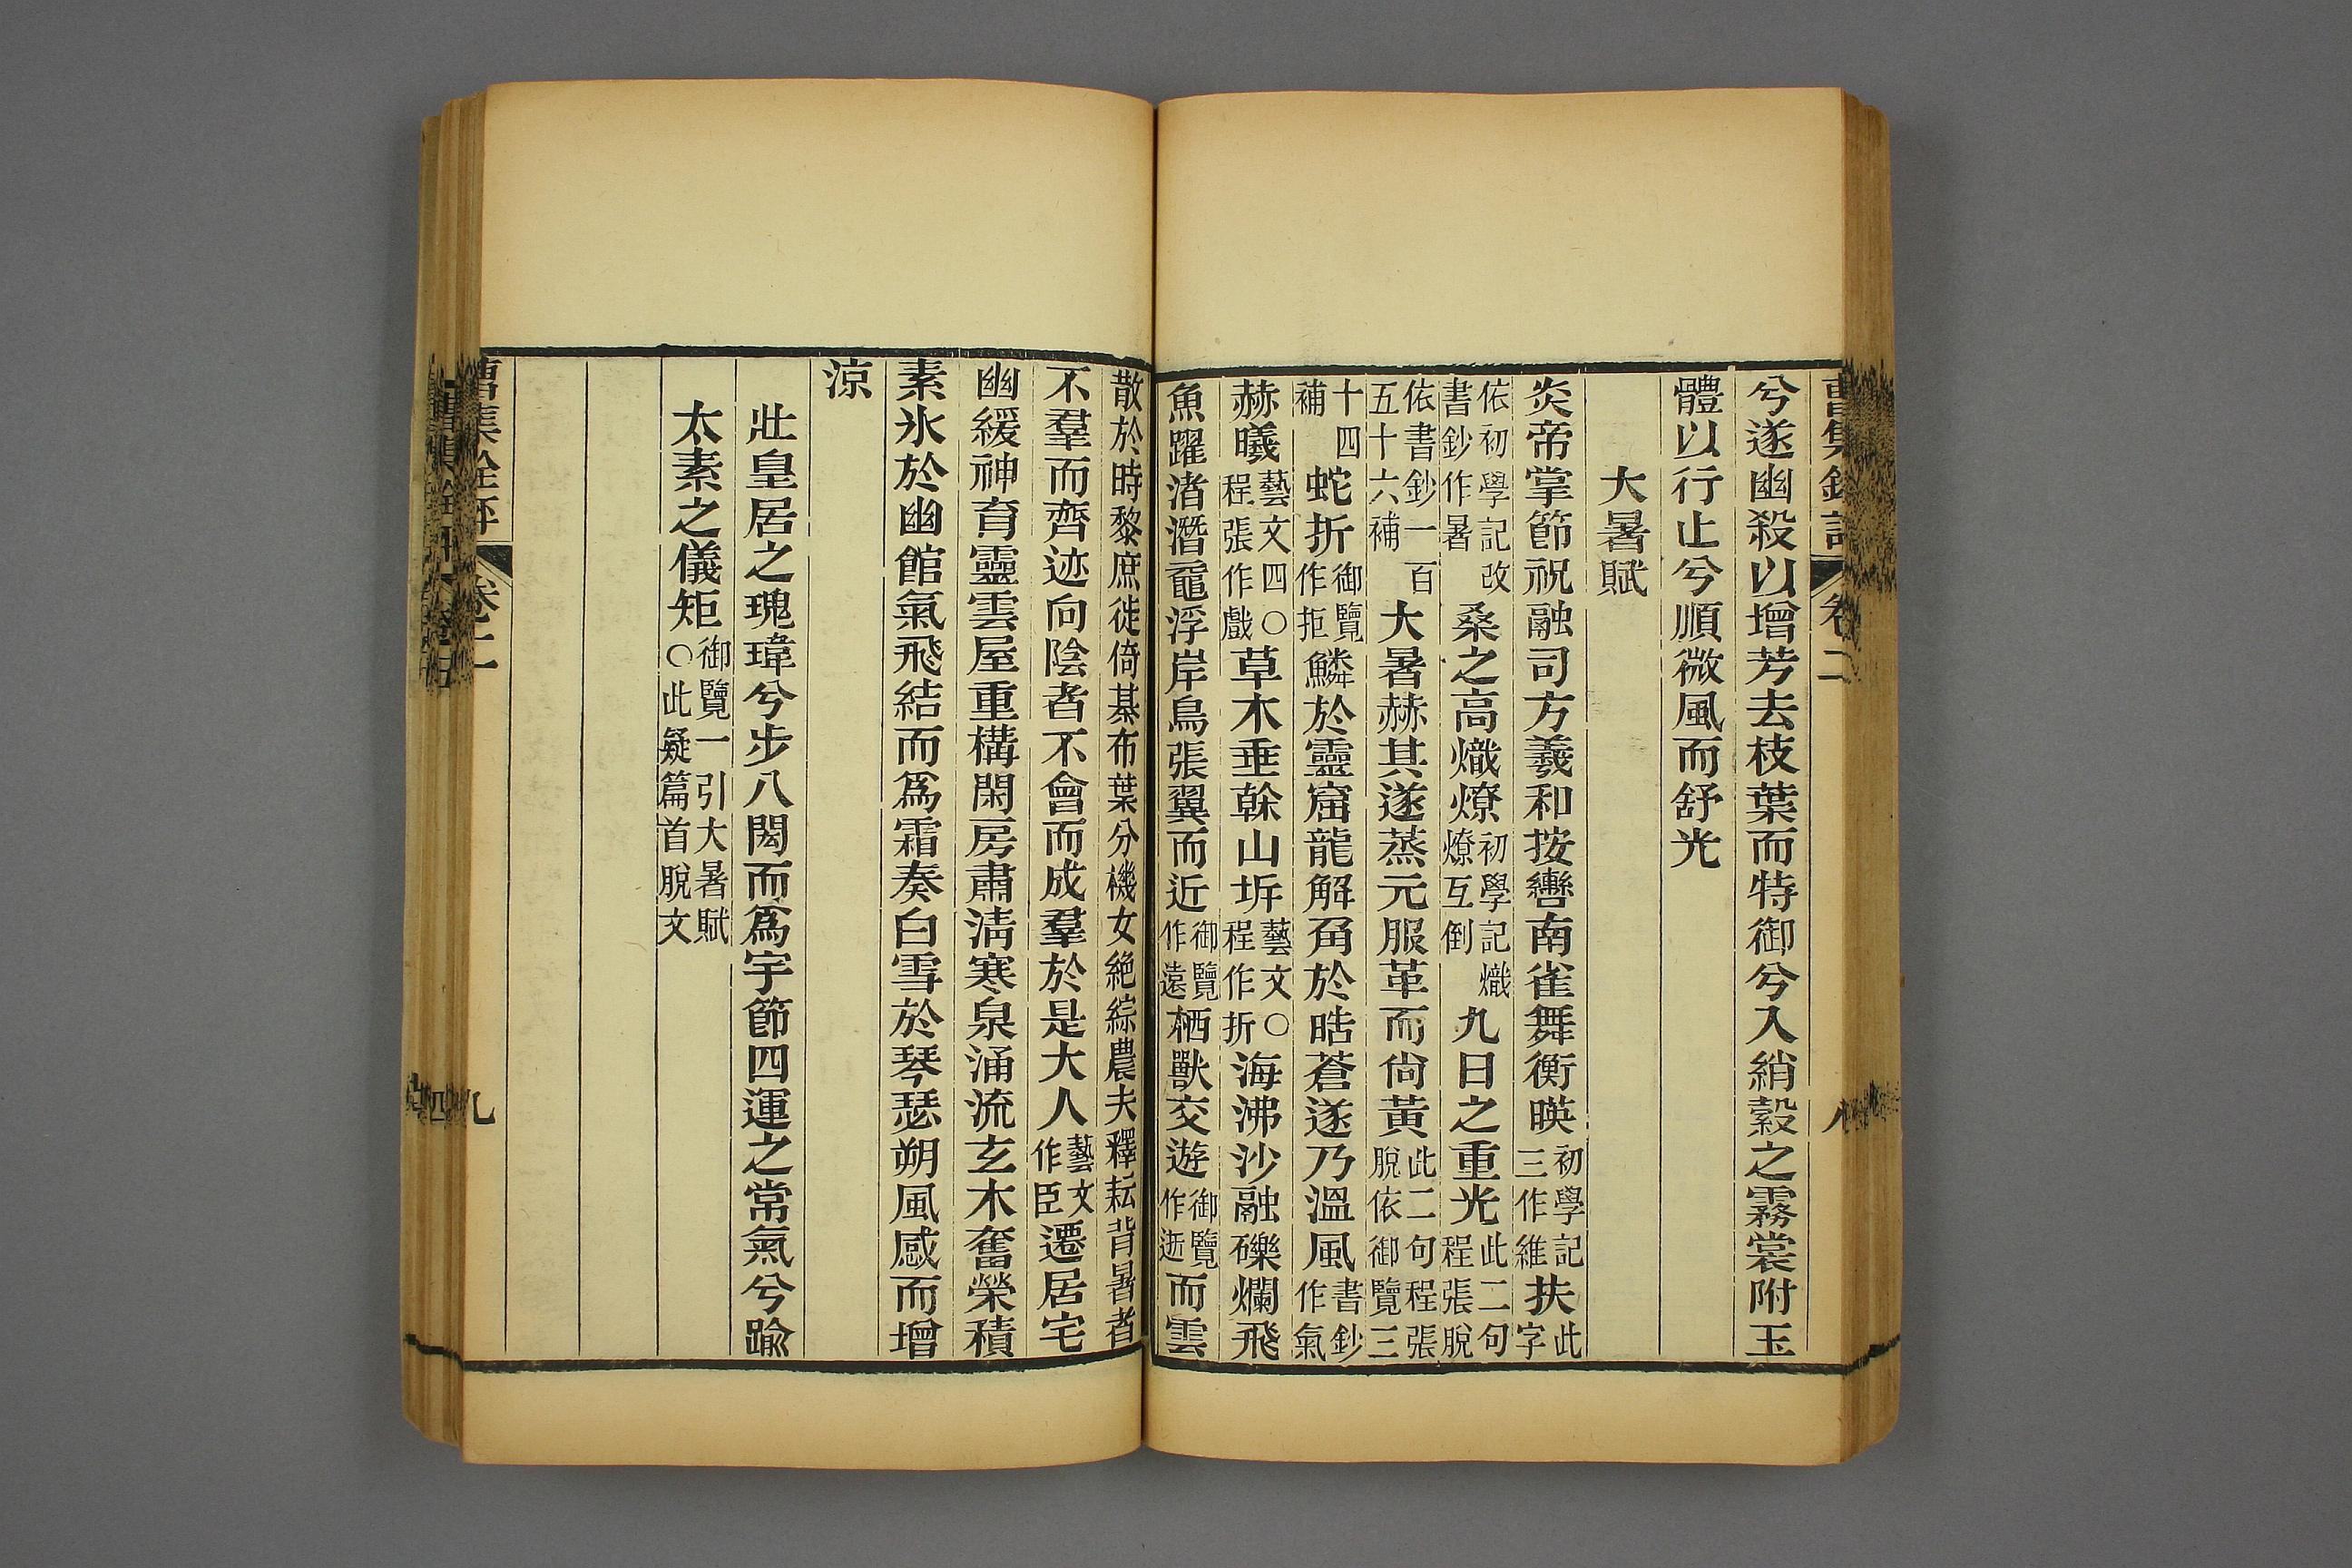 兮遂幽殺以增芳去枝葉而特御兮入綃縠之霧裳附玉
體以行止兮順微風而舒光
大暑賦
炎帝掌節祝融司方羲和按轡南雀舞衡暎初學記三作維扶此字
依初學記改書鈔作暑桑之高熾燎初學記熾燎互倒九日之重光此二句程張脫
依書鈔一百五十六補大暑赫其遂蒸元服革而尙黃此二句程張脫依御覽三
十四補蛇折御覽作拒鱗於靈窟龍解角於晧蒼遂乃溫風書鈔作氣
赫曦藝文四○程張作戲草木垂榦山坼藝文○程作折海沸沙融礫爛飛
魚躍渚潛黿浮岸鳥張翼而近御覽作遠栖獸交遊御覽作逝而雲
散於時黎庶徙倚棊布葉分機女絕綜農夫釋耘背暑者
不羣而齊迹向陰者不會而成羣於是大人藝文作臣遷居宅
幽緩神育靈雲屋重構閑房肅淸寒泉涌流玄木奮榮積
素氷於幽館氣飛結而爲霜奏白雪於琴瑟朔風感而增
涼
壯皇居之瑰瑋兮步八閎而爲宇節四運之常氣兮踰
太素之儀矩御覽一引大暑賦○此疑篇首脫文
卷二
九